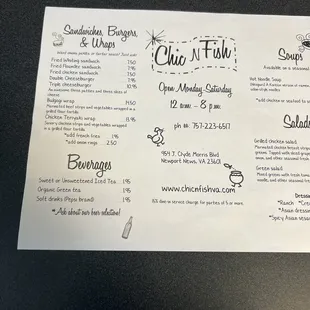 Sandwiches, Burgers,
& Wraps
Fried Whiting sandwich 7.50
Fried Flounder sandwich 7.95
Fried chicken sandwich 7.50
Double Cheeseburger 7.95
Triple cheeseburger 10.95
An awesome three patties and three slices of
cheese
Bulgogi wrap
Marinated beef strips and vegetables wrapped in
a grilled flour tortilla
Chicken Teriyaki wrap
Savory chicken strips and vegetables wrapped in
a grilled flour tortilla
*add french fries 1.95
*add onion rings 2.50
Beverages
Sweet or Unsweetened Iced Tea 1.95
Organic Green tea 1.95
Soft drinks (Pepsi brand) 1.95
*Ask about our beer selection!
Chic N Fish
Open Monday-Saturday
12 p.m. - 8 p.m.
ph #: 757-223-6517
954 J. Clyde Morris Blvd
Newport News, VA 23601
www.chicnfishva.com
15% dine-in service charge for parties of 5 or more.
Soups
Available in a
Hot Noodle Soup
*add chicken or seafood to
Salads
Grilled chicken salad
Marinated chicken breast strips
greens. Topped with diced
onion, and other seasonal fresh
Garden salad
Mixed greens with fresh
and other seasonal fresh
Dress
*Ranch
*Asian
*Spicy Asian